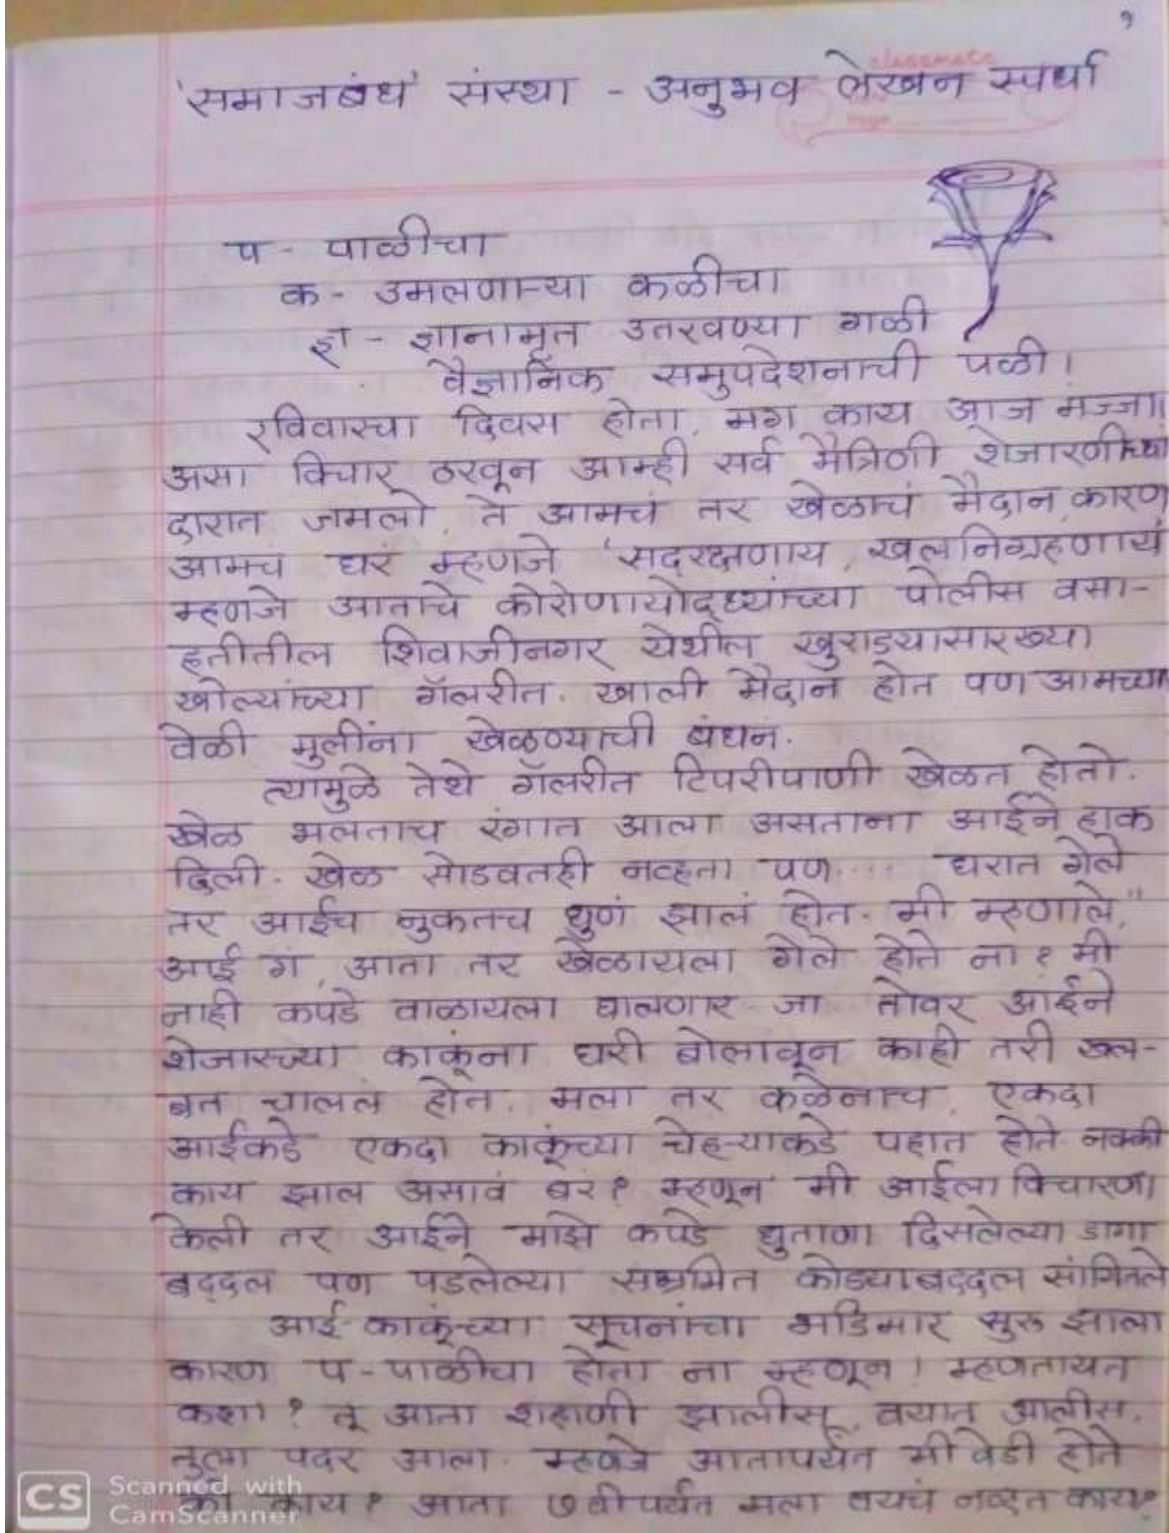 १
classmate
'समाजबंध' संस्था - अनुभव लेखन स्पर्धा
प - पाळीचा
क - उमलणाऱ्या कळीचा
ज्ञ - ज्ञानामृत उतरवण्या गळी
वैज्ञानिक समुपदेशनाची पळी।
रविवारचा दिवस होता, मग काय आज मज्जा।
असा विचार ठरवून आम्ही सर्व मैत्रिणी शेजारणीच्या
दारात जमलो, ते आमचं तर खेळाचं मैदान, कारण
आमच घर म्हणजे 'सदरक्षणाय, खलनिग्रहणाय'
म्हणजे आताचे कोरोणायोद्ध्यांच्या पोलीस वसा-
हतीतील शिवाजीनगर येथील खुराड्यासारख्या
खोल्यांच्या गॅलरीत. खाली मैदान होत पण आमच्या
वेळी मुलींना खेळण्याची बंधन.
त्यामुळे तेथे गॅलरीत टिपरीपाणी खेळत होतो.
खेळ भलताच रंगात आला असताना आईने हाक
दिली. खेळ सोडवतही नव्हता पण.... घरात गेले
तर आईच नुकतच धुणं झालं होत. मी म्हणाले,"
आई गं, आता तर खेळायला गेले होते ना? मी
नाही कपडे वाळायला घालणार जा तोवर आईने
शेजारच्या काकूंना घरी बोलावून काही तरी खल-
बत चालल होत. मला तर कळेनाच, एकदा
आईकडे एकदा काकूंच्या चेहऱ्याकडे पहात होते नक्की
काय झाल असावं बरं? म्हणून मी आईला विचारणा
केली तर आईने माझे कपडे धुताना दिसलेल्या डागा
बद्दल पण पडलेल्या संभ्रमित कोड्याबद्दल सांगितले
आई-काकूंच्या सूचनांचा भडिमार सुरू झाला
कारण प-पाळीचा होता ना म्हणून! म्हणतायत
कशा? तू आता शहाणी झालीस, वयात आलीस.
तुला पदर आला. म्हणजे आतापर्यंत मी वेडी होते
का काय? आता ७वी पर्यंत मला वयचं नव्हत काय?
CS Scanned with
CamScanner